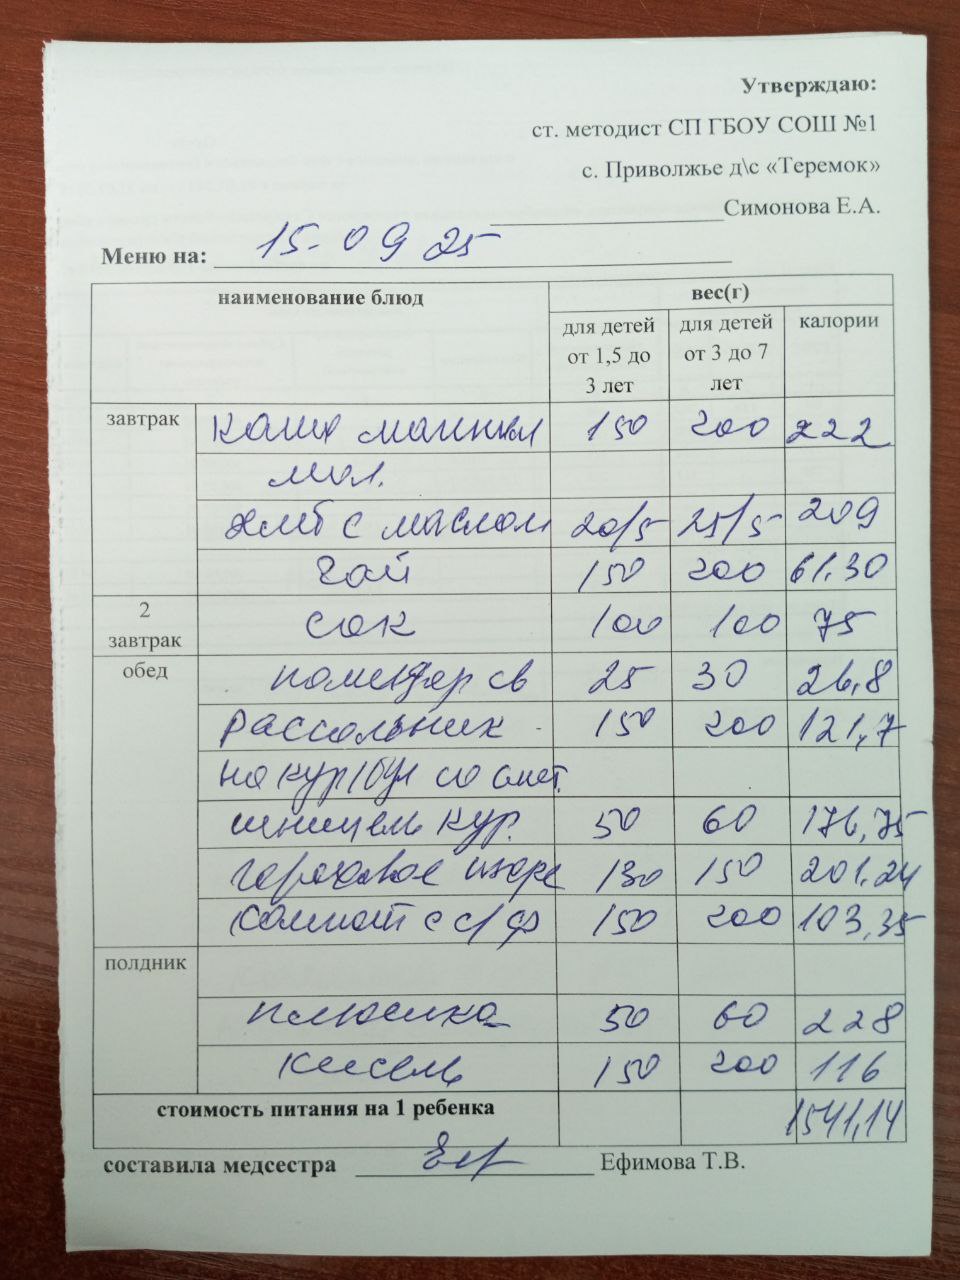 Утверждаю:
ст. методист СП ГБОУ СОШ №1
с. Приволжье д\с «Теремок»
Симонова Е.А.
Меню на: 15-09 25
наименование блюд вес(г)
для детей от 1,5 до 3 лет для детей от 3 до 7 лет калории
завтрак Каша манная 150 200 222
мол.
хлеб с маслом 20/5 25/5 209
Чай 150 200 61.30
2 завтрак сок 100 100 75
обед помидор св 25 30 26,8
Рассольник 150 200 121,7
на кур/бул со смет.
шницель кур. 50 60 176,75
гороховое пюре 130 150 201.24
Компот с с/ф 150 200 103,35
полдник
плюшка 50 60 228
Кисель 150 200 116
стоимость питания на 1 ребенка 1541,14
составила медсестра Ефимова Т.В.